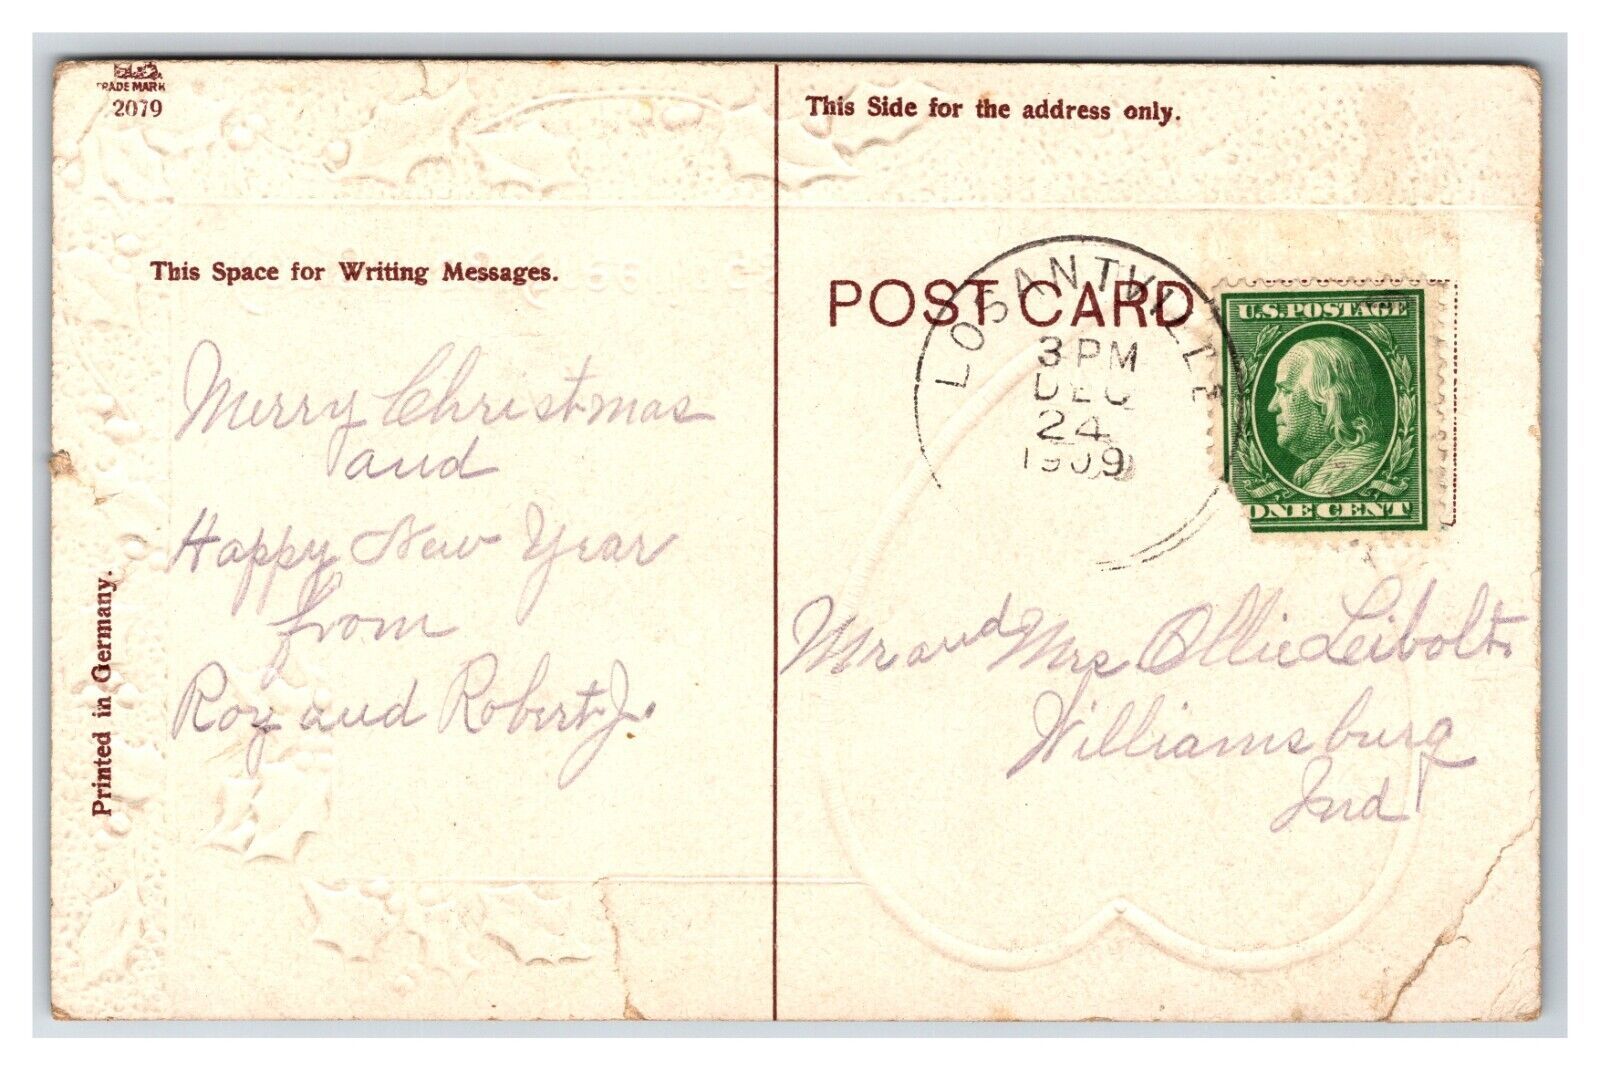 TRADE MARK
2079
This Space for Writing Messages.
Merry Christmas
and
Happy New Year
from
Roy and Robert J.
Printed in Germany.
This Side for the address only.
POST CARD
LOSANTVILLE
3 PM
DEC
24
1909
U.S. POSTAGE
ONE CENT
Mr and Mrs Ollie Leibolt.
Williamsburg
Ind